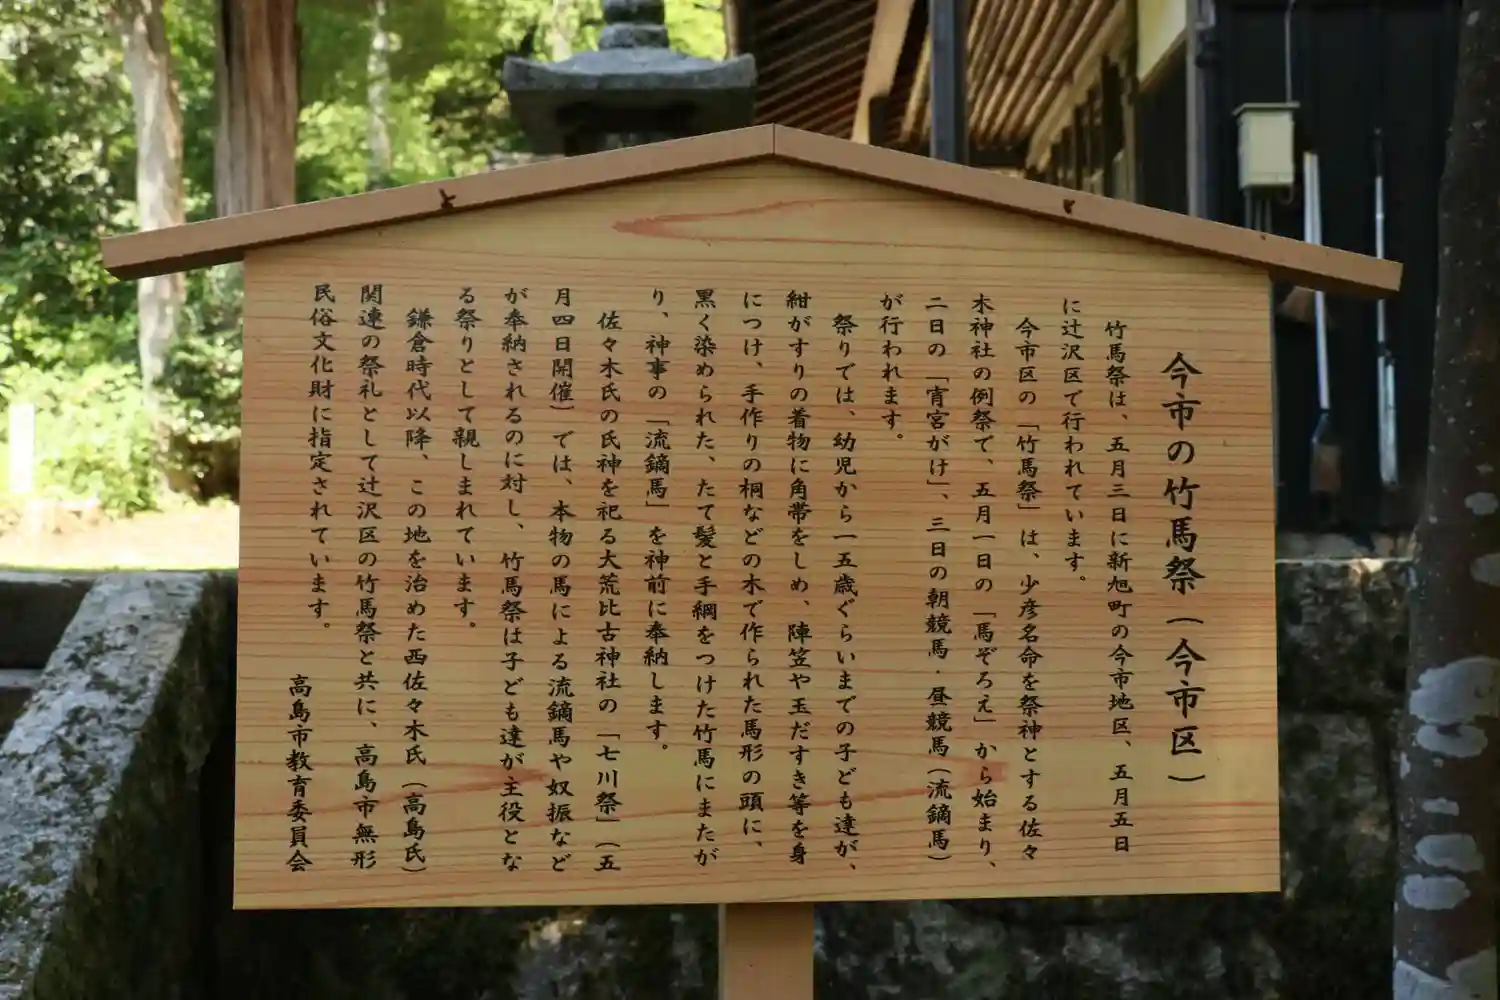 今市の竹馬祭（今市区）
竹馬祭は、五月三日に新旭町の今市地区、五月五日
に辻沢区で行われています。
今市区の「竹馬祭」は、少彦名命を祭神とする佐々
木神社の例祭で、五月一日の「馬ぞろえ」から始まり、
二日の「宵宮がけ」、三日の朝競馬・昼競馬（流鏑馬）
が行われます。
祭りでは、幼児から一五歳ぐらいまでの子ども達が、
紺がすりの着物に角帯をしめ、陣笠や玉だすき等を身
につけ、手作りの桐などの木で作られた馬形の頭に、
黒く染められた、たて髪と手綱をつけた竹馬にまたが
り、神事の「流鏑馬」を神前に奉納します。
佐々木氏の氏神を祀る大荒比古神社の「七川祭」（五
月四日開催）では、本物の馬による流鏑馬や奴振など
が奉納されるのに対し、竹馬祭は子ども達が主役とな
る祭りとして親しまれています。
鎌倉時代以降、この地を治めた西佐々木氏（高島氏）
関連の祭礼として辻沢区の竹馬祭と共に、高島市無形
民俗文化財に指定されています。
高島市教育委員会